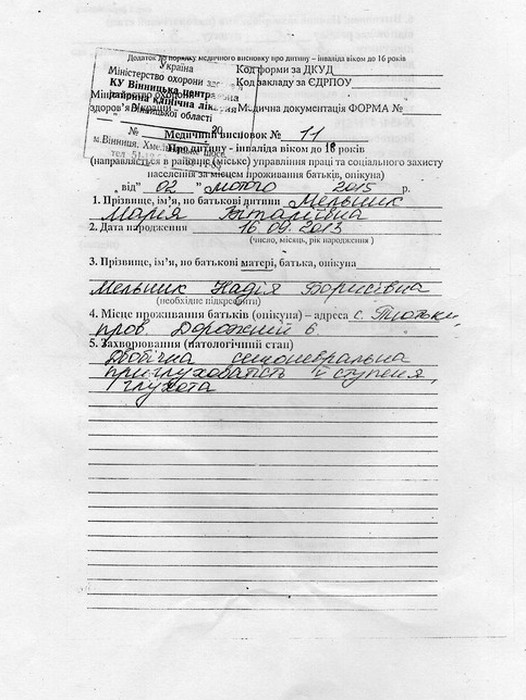 Додаток до порядку медичного висновку про дитину – інваліда віком до 16 років
Україна
Міністерство охорони
КУ Вінницька центральна
районна клінічна лікарня
Вінницької області
№ 20
м.Вінниця, Хмельницьке шосе,
тел
Код форми за ДКУД
Код закладу за ЄДРПОУ
Міністерство охорони
здоров'я України
Медична документація ФОРМА №
Медичний висновок № 11
Про дитину - інваліда віком до 18 років
(направляється в районне (місько) управління праці та соціального захисту
населення за місцем проживання батьків, опікуна)
від" 02 " лютого 2015 р.
1. Прізвище, ім'я, по батькові дитини Мельник
Марія Віталіївна
2. Дата народження 16.09.2013
(число, місяць, рік народження )
3. Прізвище, ім'я, по батькові матері, батька, опікуна
Мельник Надія Борисівна
(необхідне підкреслити)
4. Місце проживання батьків (опікуна) – адреса с. Тютьки,
пров. Дорожний 6.
5. Захворювання (патологічний стан)
Двобічна сенсоневральна
приглухуватість ступеня,
глухота